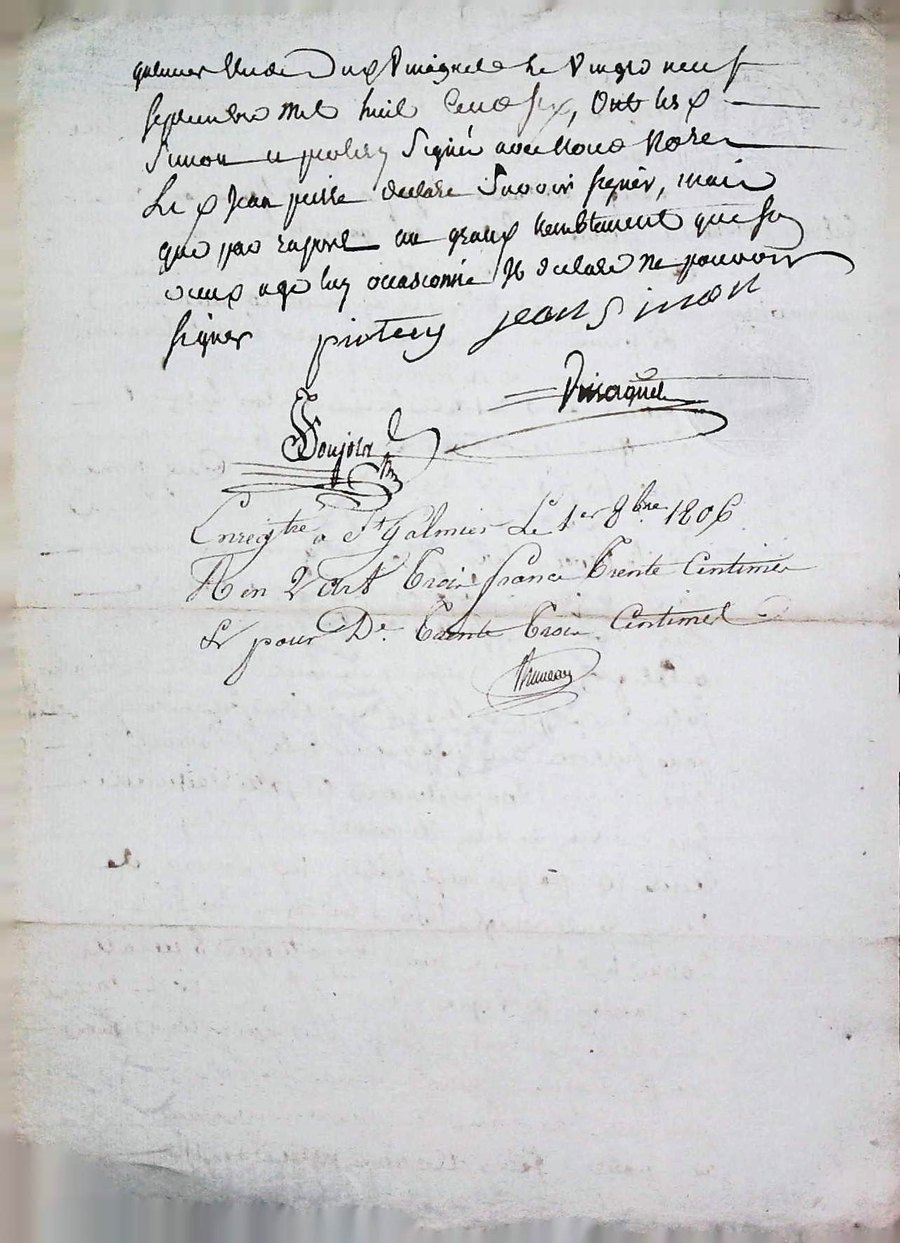 galmier Etude Du d Vinagnele Le Vingt neuf
septembre Mil huit Cent six, Ont les d
Simon et protery Signés avec Nous Nore
Le d Jean pierre declare Savoir signer, mais
que par raport au grand tremblement que son
vieux age luy occasionne Il declare ne pouvoir
signer protery jean Simon
Vinagnel
Soujola
Enregtré à St Galmier Le 1er 8bre 1806
R en 2 art Trois francs Trente Centimes
Et pour De. Trente Trois Centimes
Bruneau